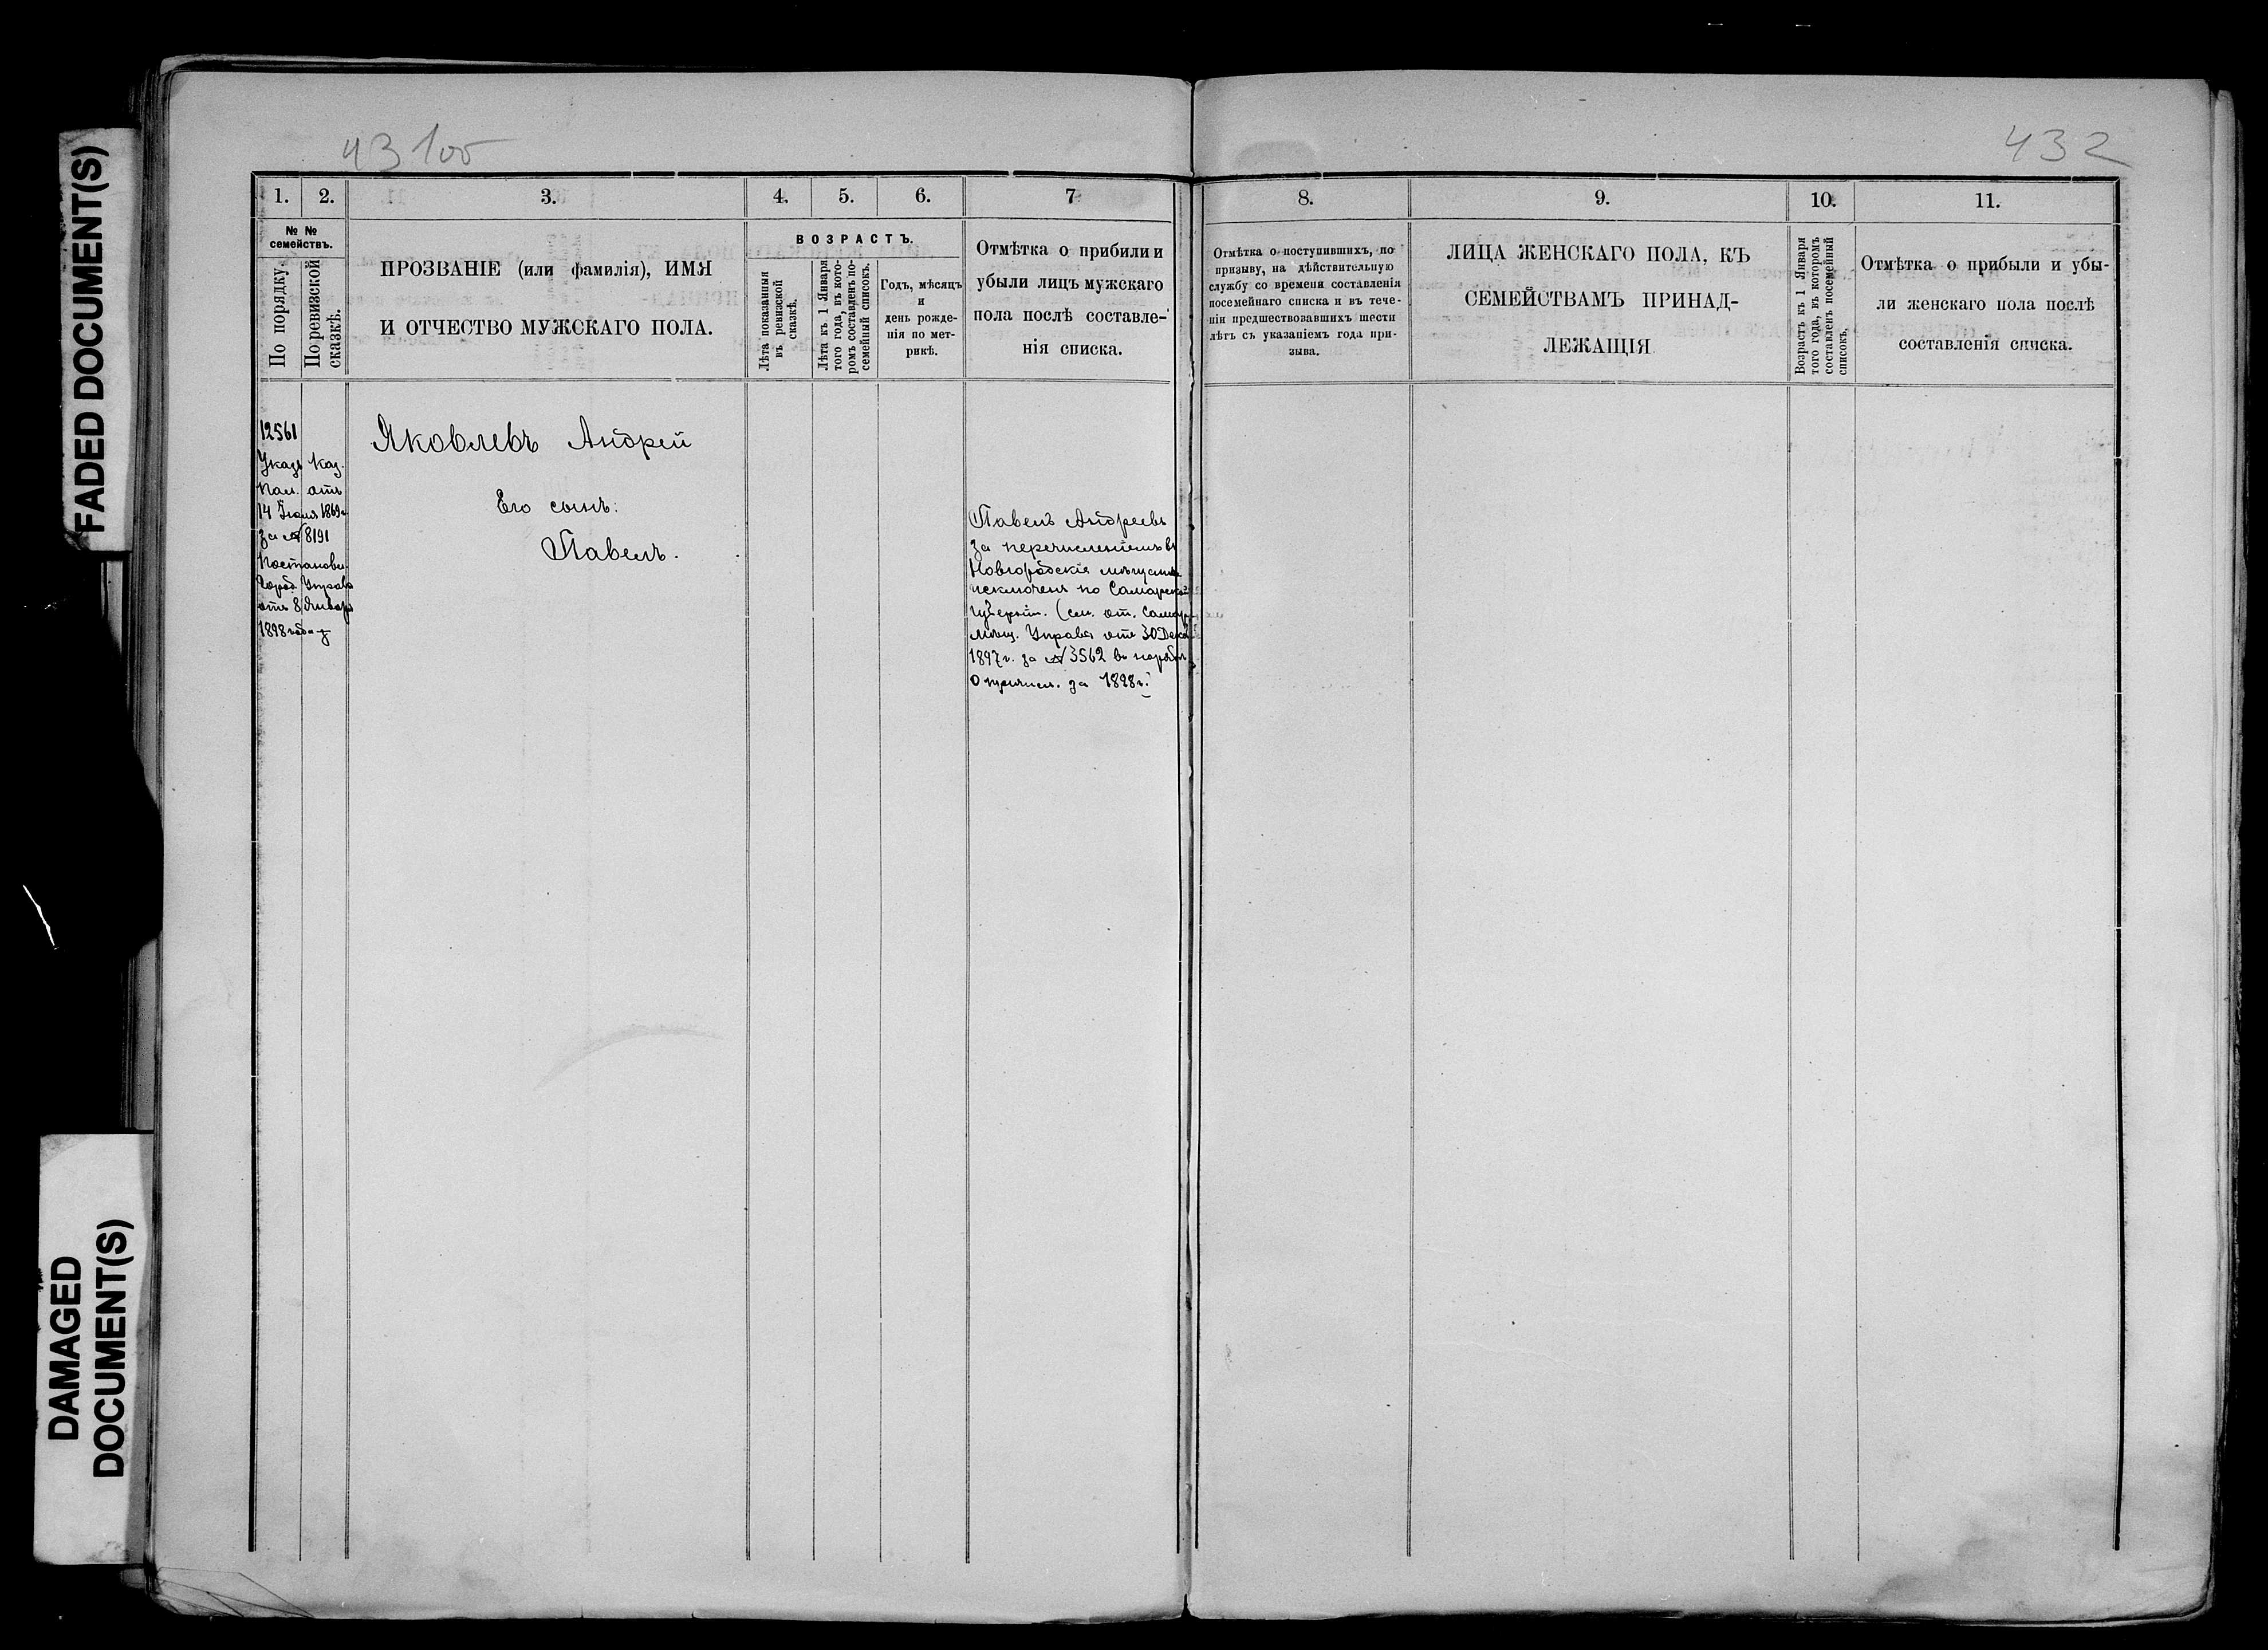 FADED DOCUMENT(S)
DAMAGED
DOCUMENT(S)
431об
432
1.
2.
3.
4.
5.
6.
7
8.
9.
10.
11.
№ №
семействъ.
По порядку.
По ревизской
сказкѣ.
ПРОЗВАНІЕ (или фамилія), ИМЯ
И ОТЧЕСТВО МУЖСКАГО ПОЛА.
ВОЗРАСТЪ.
Лѣта показанныя
въ ревизской
сказкѣ.
Лѣта къ 1 Января
того года, въ кото-
ромъ составленъ по-
семейный списокъ.
Годъ, мѣсяцъ
и
день рожде-
нія по мет-
рикѣ.
Отмѣтка о прибыли и
убыли лицъ мужскаго
пола послѣ составле-
нія списка.
Отмѣтка о поступившихъ, по
призыву, на дѣйствительную
службу со времени составленія
посемейнаго списка и въ тече-
ніи предшествовавшихъ шести
лѣтъ съ указаніемъ года при-
зыва.
ЛИЦА ЖЕНСКАГО ПОЛА, КЪ
СЕМЕЙСТВАМЪ ПРИНАД-
ЛЕЖАЩІЯ
Возрастъ къ 1 Января
того года, въ которомъ
составленъ посемейный
списокъ.
Отмѣтка о прибыли и убы-
ли женскаго пола послѣ
составленія списка.
12561
Указъ Каз.
Пал. отъ
14 1869 г.
за № 8191
Постановл.
Город. Управы
отъ 8 Января
1898 года
Яковлевъ Андрей
Его сынъ:
Павелъ.
Павелъ Андреевъ
за перечисленіемъ въ
Новгородскіе мѣщане
исключенъ по Самарской
губерніи. (см. от. Самар.
мѣщ. Управы отъ 30 Дека
1897 г. за № 3562 въ
о причисл. за 1898 г.